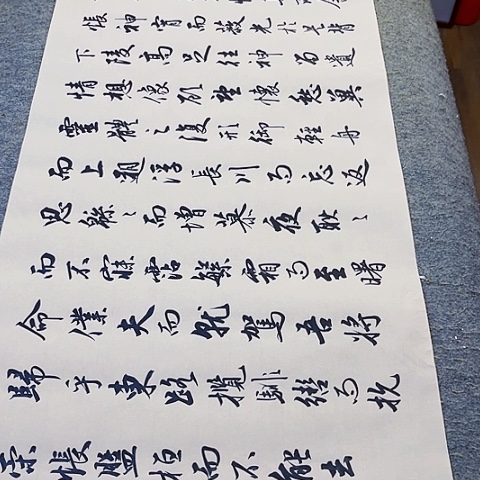 悵神宵而蔽光於是背
下陵高足往神留遺
情想像顧望懷愁冀
靈體之復形御輕舟
而上遡浮長川而忘返
思緜々而增慕夜耿々
而不寐霑繁霜而至曙
命僕夫而就駕吾將
歸乎東路攬騑轡以抗
策悵盤桓而不能去